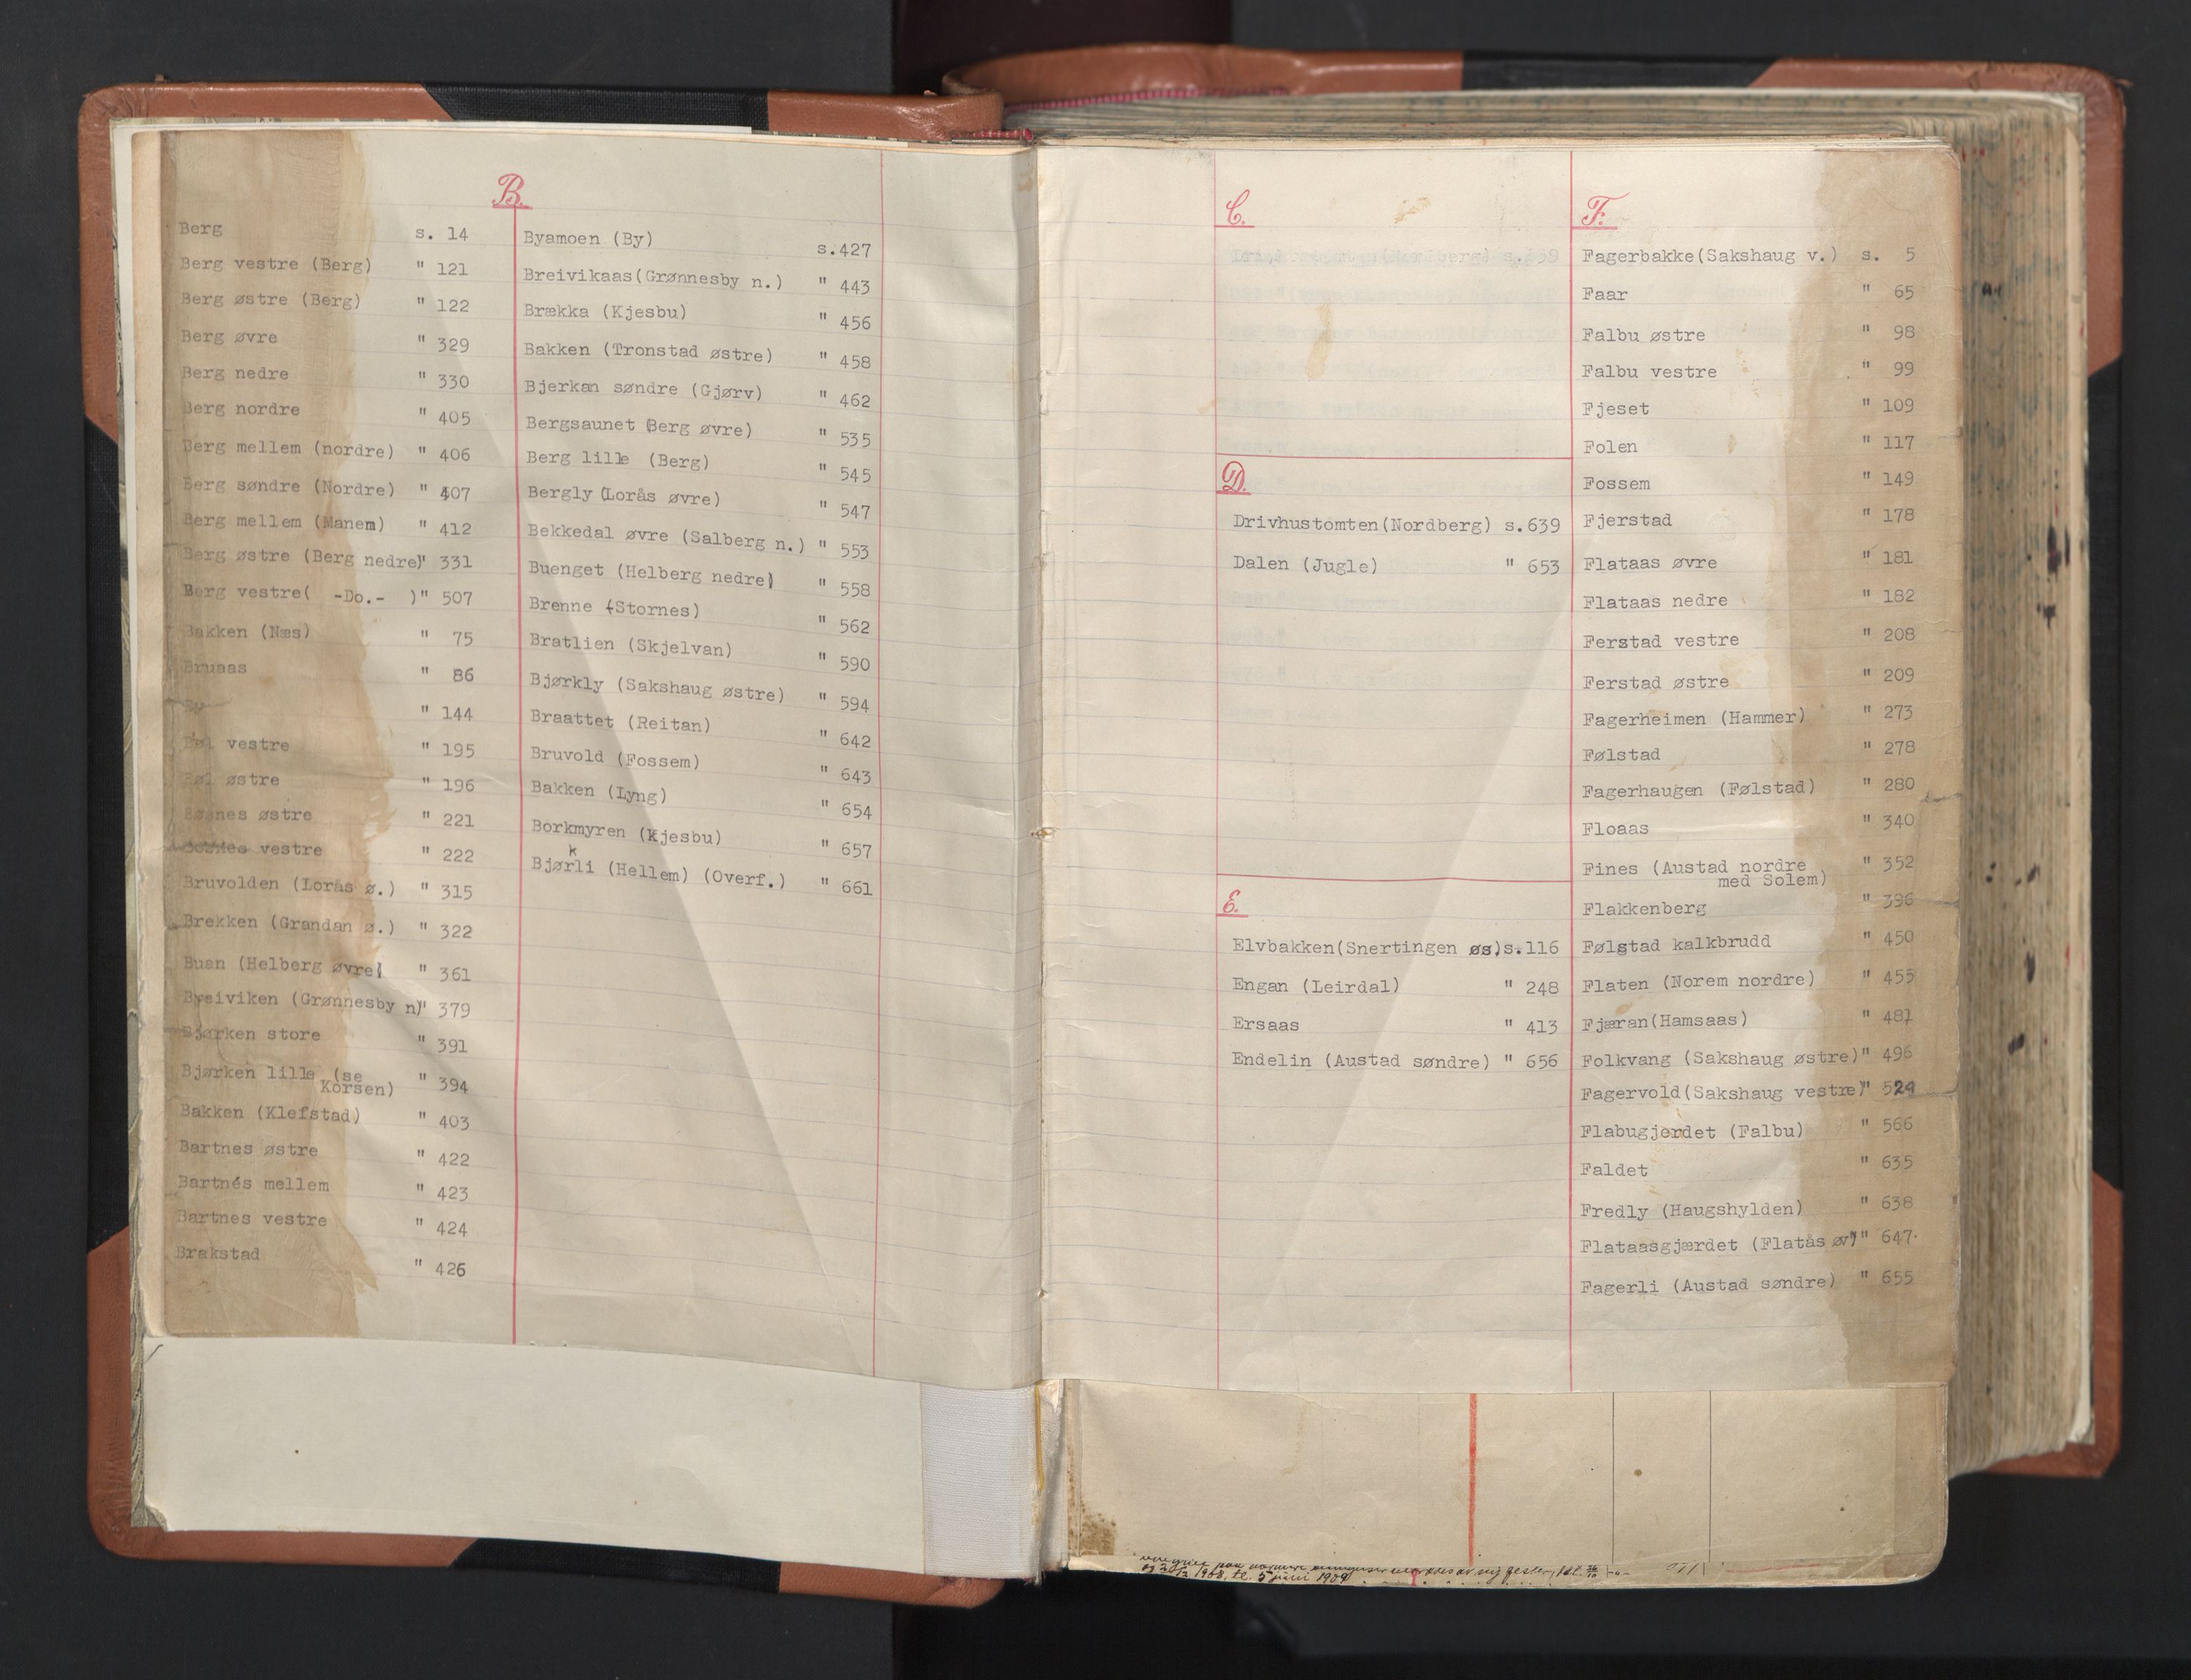 B.
Berg s. 14
Berg vestre (Berg) " 121
Berg østre (Berg) " 122
Berg øvre " 329
Berg nedre " 330
Berg nordre " 405
Berg mellem (nordre) " 406
Berg søndre (Nordre) " 407
Berg mellem (Manem) " 412
Berg østre (Berg nedre)" 331
Berg vestre( -Do.- )" 507
Bakken (Næs) " 75
Bruaas " 86
By " 144
Bøl vestre " 195
Bøl østre " 196
Bøsnes østre " 221
vestre " 222
Bruvolden (Lorås ø.) " 315
Brekken (Grandan ø.) " 322
Buan (Helberg øvre) " 361
Breiviken (Grønnesby n)" 379
Bjørken store " 391
Bjørken lille (se " 394
Korsen)
Bakken (Klefstad) " 403
Bartnes østre " 422
Bartnés mellem " 423
Bartnes vestre " 424
Brakstad " 426
Byamoen (By) s.427
Breivikaas(Grønnesby n.) " 443
Brækka (Kjesbu) " 456
Bakken (Tronstad østre) " 458
Bjerkan søndre (Gjørv) " 462
Bergsaunet (Berg øvre) " 535
Berg lille (Berg) " 545
Bergly (Lorås øvre) " 547
Bekkedal øvre (Salberg n.) " 553
Buenget (Helberg nedre) " 558
Brenne (Stornes) " 562
Bratlien (Skjelvan) " 590
Bjørkly (Sakshaug østre) " 594
Braattet (Reitan) " 642
Bruvold (Fossem) " 643
Bakken (Lyng) " 654
Borkmyren (Kjesbu) " 657
k
Bjørli (Hellem) (Overf.) " 661
C.
D.
Drivhustomten(Nordberg) s.639
Dalen (Jugle) " 653
E.
Elvbakken(Snertingen øs)s.116
Engan (Leirdal) " 248
Ersaas " 413
Endelin (Austad søndre) " 656
F.
Fagerbakke(Sakshaug v.) s. 5
Faar " 65
Falbu østre " 98
Falbu vestre " 99
Fjeset " 109
Folen " 117
Fossem " 149
Fjerstad " 178
Flataas øvre " 181
Flataas nedre " 182
Ferstad vestre " 208
Ferstad østre " 209
Fagerheimen (Hammer) " 273
Følstad " 278
Fagerhaugen (Følstad) " 280
Floaas " 340
Fines (Austad nordre " 352
med Solem)
Flakkenberg " 396
Følstad kalkbrudd " 450
Flaten (Norem nordre) " 455
Fjæran(Hamsaas) " 481
Folkvang (Sakshaug østre)" 496
Fagervold(Sakshaug vestre)" 524
Flabugjerdet (Falbu) " 566
Faldet " 635
Fredly (Haugshylden) " 638
Flataasgjærdet (Flatås øv)" 647.
Fagerli (Austad søndre) " 655
1908 1909